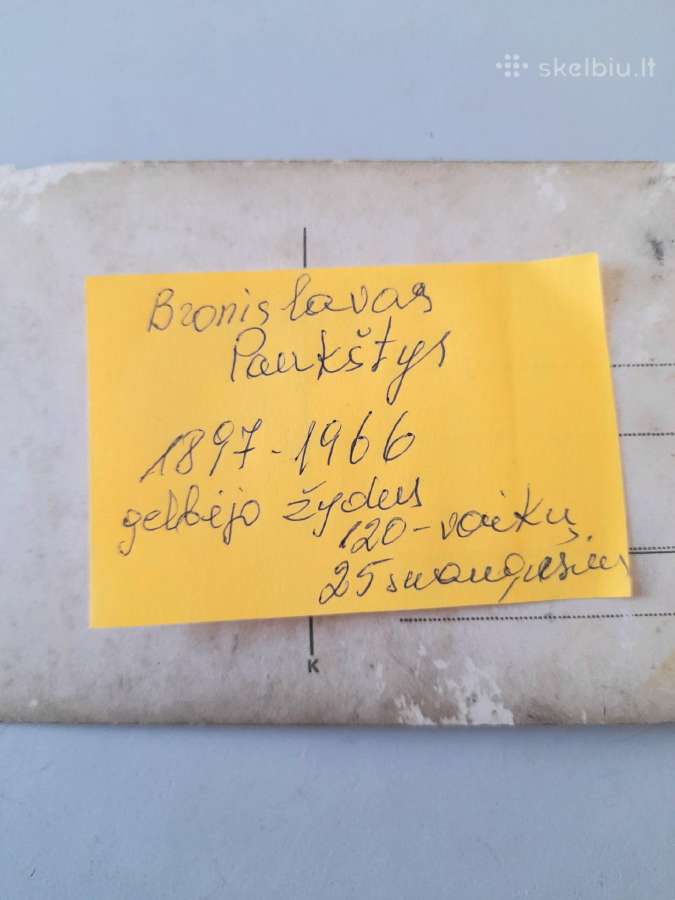 skelbiu.lt
Bronislavas
Paukštys
1897-1966
gelbėjo žydus
120-vaikų
25 suaugusius
K